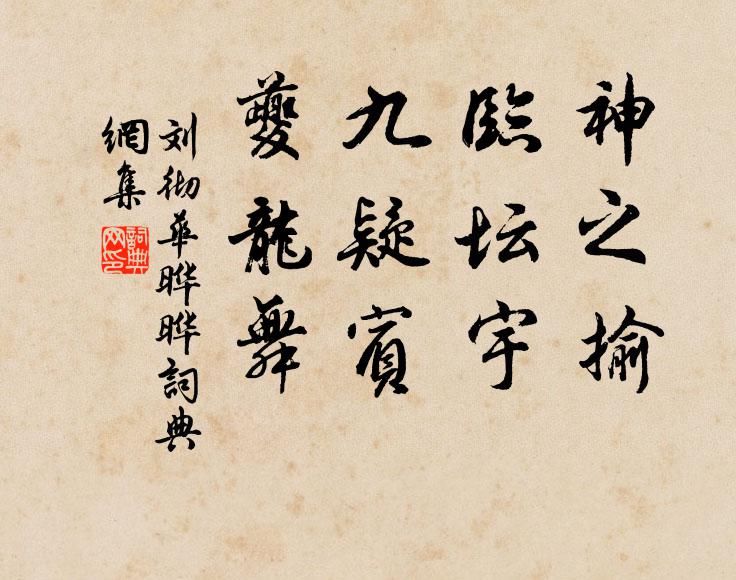 神之揄
臨坛宇
九疑賓
夔龍舞
刘彻華晔晔詞典
網集
詞典
网印